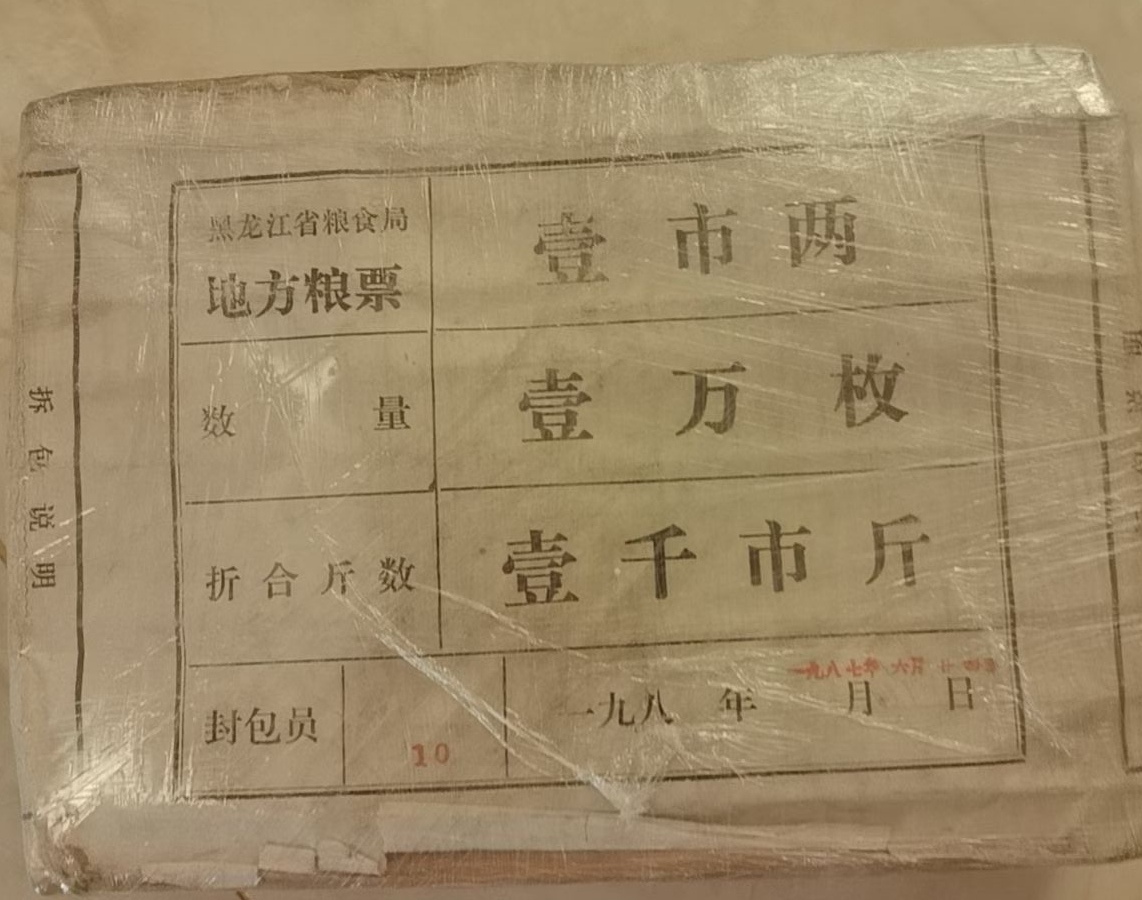 黑龙江省粮食局
地方粮票
壹市两
数量
壹万枚
折合斤数
壹千市斤
封包员
10
一九八七年六月廿四日
一九八 年 月 日
拆包说明